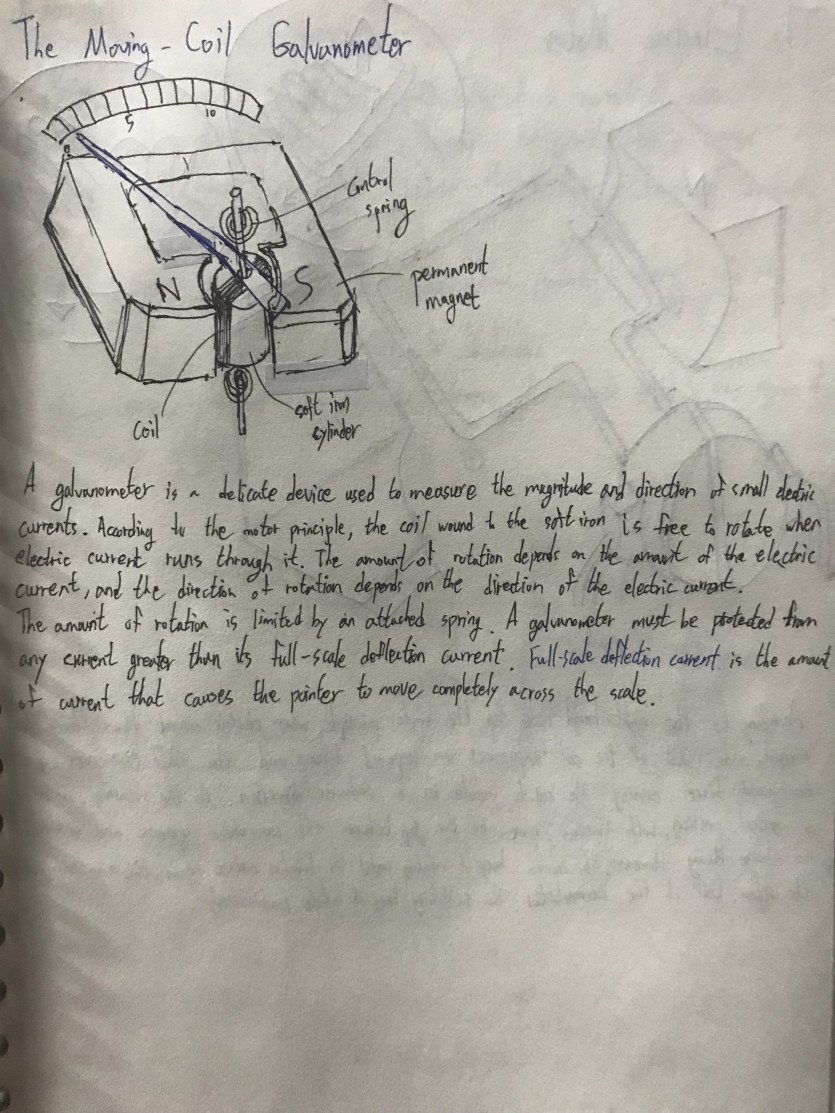 The Moving-Coil Galvanometer
0 5 10
control
spring
N S
permanent
magnet
coil
soft iron
cylinder
A galvanometer is a delicate device used to measure the magnitude and direction of small electric
currents. According to the motor principle, the coil wound to the soft iron is free to rotate when
electric current runs through it. The amount of rotation depends on the amount of the electric
current, and the direction of rotation depends on the direction of the electric current.
The amount of rotation is limited by an attached spring. A galvanometer must be protected from
any current greater than its full-scale deflection current. Full-scale deflection current is the amount
of current that causes the pointer to move completely across the scale.